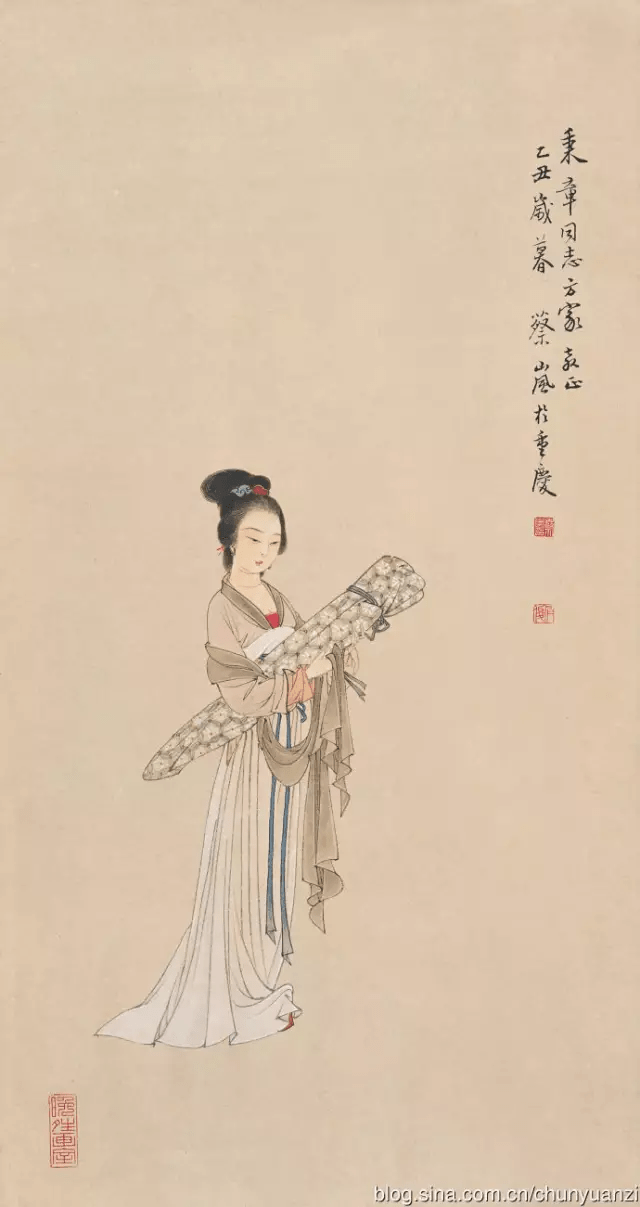 秉章同志方家教正
乙丑歲暮 蔡嵐於重慶
blog.sina.com.cn/chunyuanzi